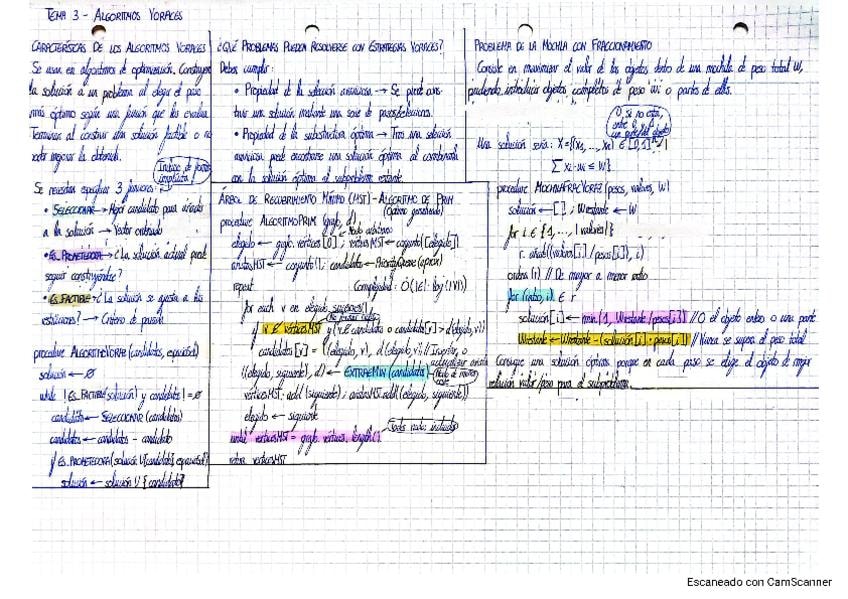 TEMA 3 - ALGORITMOS VORACES
CARACTERÍSTICAS DE LOS ALGORITMOS VORACES
Se usan en algoritmos de optimización. Construyen
la solución a un problema al elegir el paso
más óptimo según una función que los evalúa.
Terminan al construir una solución factible o no
poder mejorar la obtenida.
Índice de forma
implícita!
Se necesitan especificar 3 funciones:
• SELECCIONAR → Mejor candidato para añadir
a la solución → Vector ordenado
• ES_PROMETEDORA → ¿La solución actual puede
seguir construyéndose?
• ES_FACTIBLE → ¿La solución se ajusta a las
restricciones? → Criterio de parada
procedure ALGORITMOVORAZ (candidatos, expansión)
solución ← ∅
while !ES_FACTIBLE(solución) y candidatos != ∅
candidato ← SELECCIONAR (candidatos)
candidatos ← candidatos - candidato
if ES_PROMETEDORA (solución U {candidato}, expansión)
solución ← solución U {candidato}
¿QUÉ PROBLEMAS PUEDEN RESOLVERSE CON ESTRATEGIAS VORACES?
Deben cumplir:
• Propiedad de la selección → Se puede cons-
truir una solución mediante una serie de pasos/selecciones.
• Propiedad de la subestructura óptima → Tras una selección
puede encontrarse una solución óptima al combinarla
con la solución al subproblema restante.
ÁRBOL DE RECUBRIMIENTO MÍNIMO (MST) - ALGORITMO DE PRIM
(Óptimo garantizado)
procedure ALGORITMOPRIM (grafo, d)
Nodo aleatorio
elegido ← grafo.vertices[0]; verticesMST ← conjunto({elegido})
aristasMST ← conjunto(); candidatos ← PriorityQueue(aprox)
repeat Complejidad: O(|E|·log|V|)
for each v en elegido.
if v ∉ verticesMST y (v ∉ candidatos o candidatos[v] > d(elegido, v))
candidatos[v] = ((elegido, v), d(elegido, v)) // Insertar, o
actualizar arista
((elegido, siguiente), d) ← EXTRAEMIN(candidatos)
verticesMST.add(siguiente); aristasMST.add((elegido, siguiente))
elegido ← siguiente
Todos nodos incluidos
until verticesMST = grafo.vertices.length()
return verticesMST
PROBLEMA DE LA MOCHILA CON FRACCIONAMIENTO
Consiste en maximizar el valor de los objetos dentro de una mochila de peso total W,
pudiendo introducir objetos completos de peso wi o partes de ellos.
0, si no está,
Una solución sería: X = {x1, ..., xn} ∈ [0,1]
∑ xi·wi ≤ W}
procedure MOCHILAFRACVORAZ (pesos, valores, W)
solución ← []; Wrestante ← W
for i ∈ {1, ..., |valores|}
r.add((valores[i]/pesos[i]), i)
ordena (r) // De mayor a menor ratio
for (ratio, i) ∈ r
solución[i] ← min(1, Wrestante/pesos[i]) // O el objeto entero o una parte
Wrestante ← Wrestante - (solución[i]·pesos[i]) // Nunca se supera el peso total
Consigue una solución óptima porque en cada paso se elige el objeto de mejor
relación valor/peso para el subproblema.
Escaneado con CamScanner